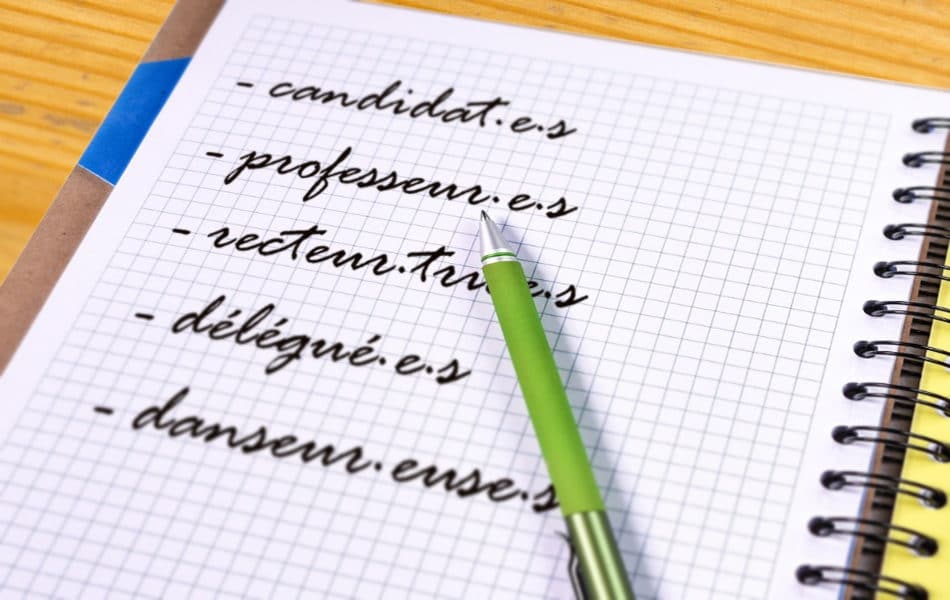 - candidat·e·s
- professeur·e·s
- recteur·trice·s
- délégué·e·s
- danseur·euse·s